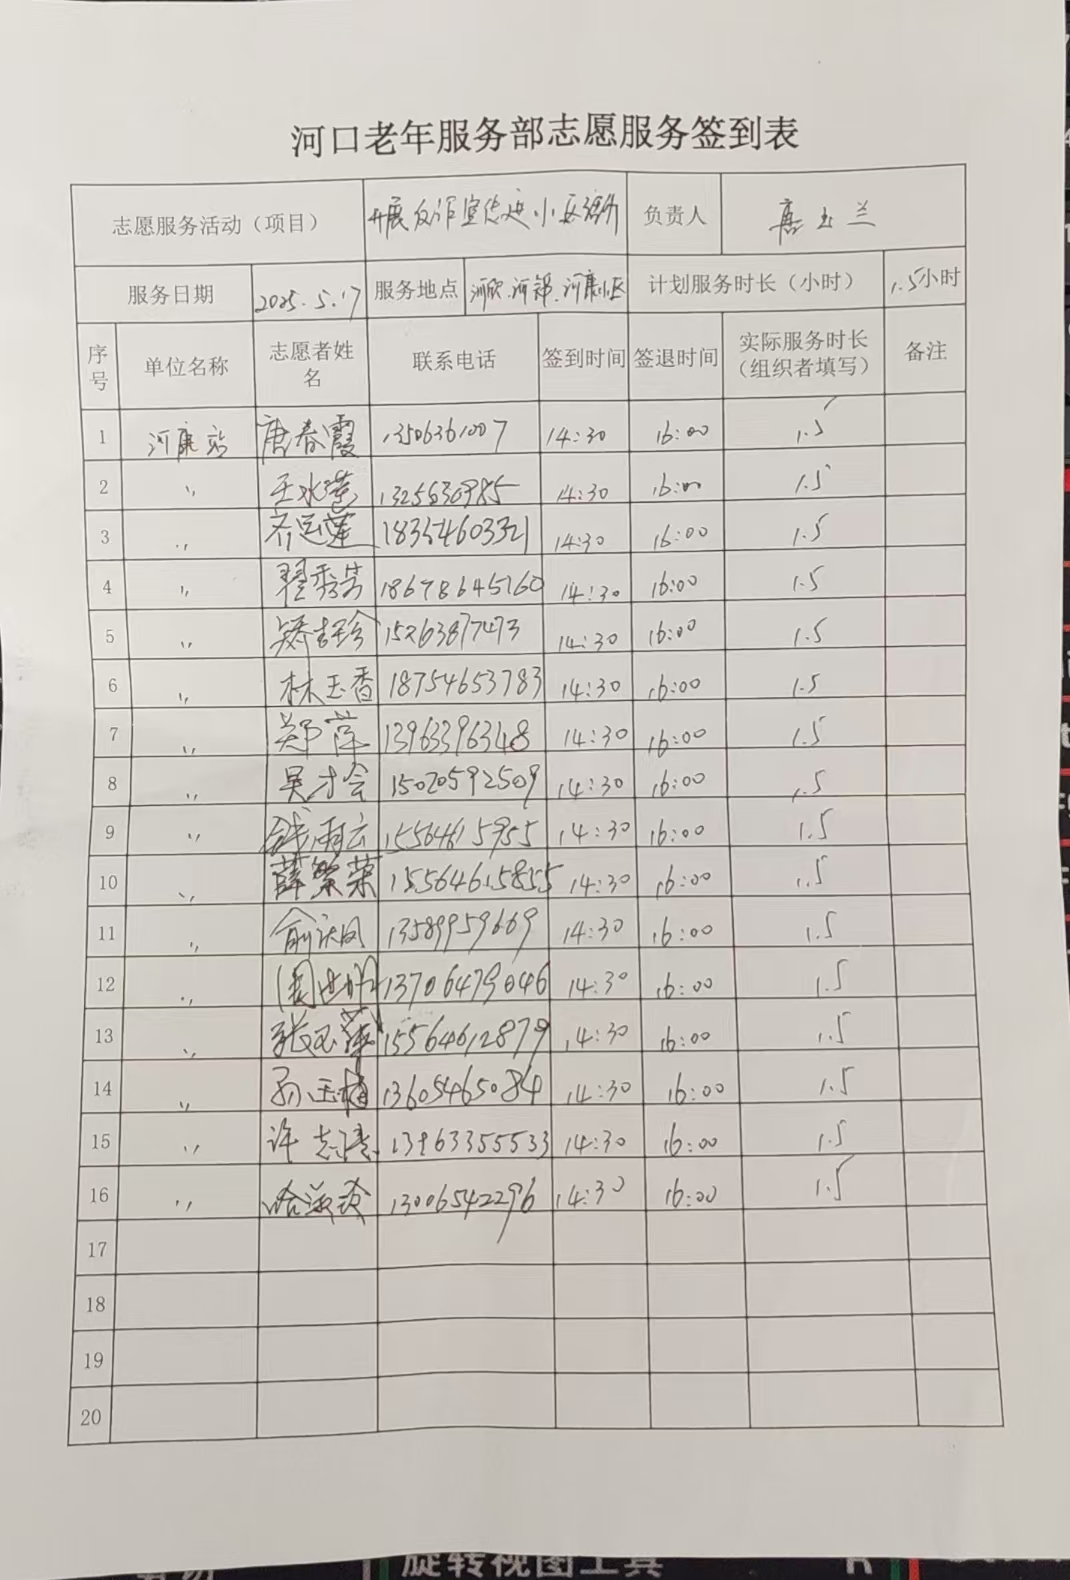 河口老年服务部志愿服务签到表
志愿服务活动（项目） 开展反诈宣传进小区活动 负责人 唐玉兰
服务日期 2025.5.17 服务地点 河欣.河锦.河康小区 计划服务时长（小时） 1.5小时
序号 单位名称 志愿者姓名 联系电话 签到时间 签退时间 实际服务时长（组织者填写） 备注
1 河康站 唐春霞 13506361007 14:30 16:00 1.5
2 〃 王水莲 14:30 16:00 1.5
3 〃 齐运莲 18354603321 14:30 16:00 1.5
4 〃 翟秀芳 18678645760 14:30 16:00 1.5
5 〃 15263877473 14:30 16:00 1.5
6 〃 林玉香 18754653783 14:30 16:00 1.5
7 〃 郑萍 13963396348 14:30 16:00 1.5
8 〃 吴才会 15020592509 14:30 16:00 1.5
9 〃 钱雨云 15564615955 14:30 16:00 1.5
10 〃 薛繁荣 15564615855 14:30 16:00 1.5
11 〃 俞庆凤 13589959669 14:30 16:00 1.5
12 〃 13706479046 14:30 16:00 1.5
13 〃 张玉萍 15564612879 14:30 16:00 1.5
14 〃 孙玉梅 13605465084 14:30 16:00 1.5
15 〃 许志清 13963355533 14:30 16:00 1.5
16 〃 13006542296 14:30 16:00 1.5
17
18
19
20
旋转视图工具
R